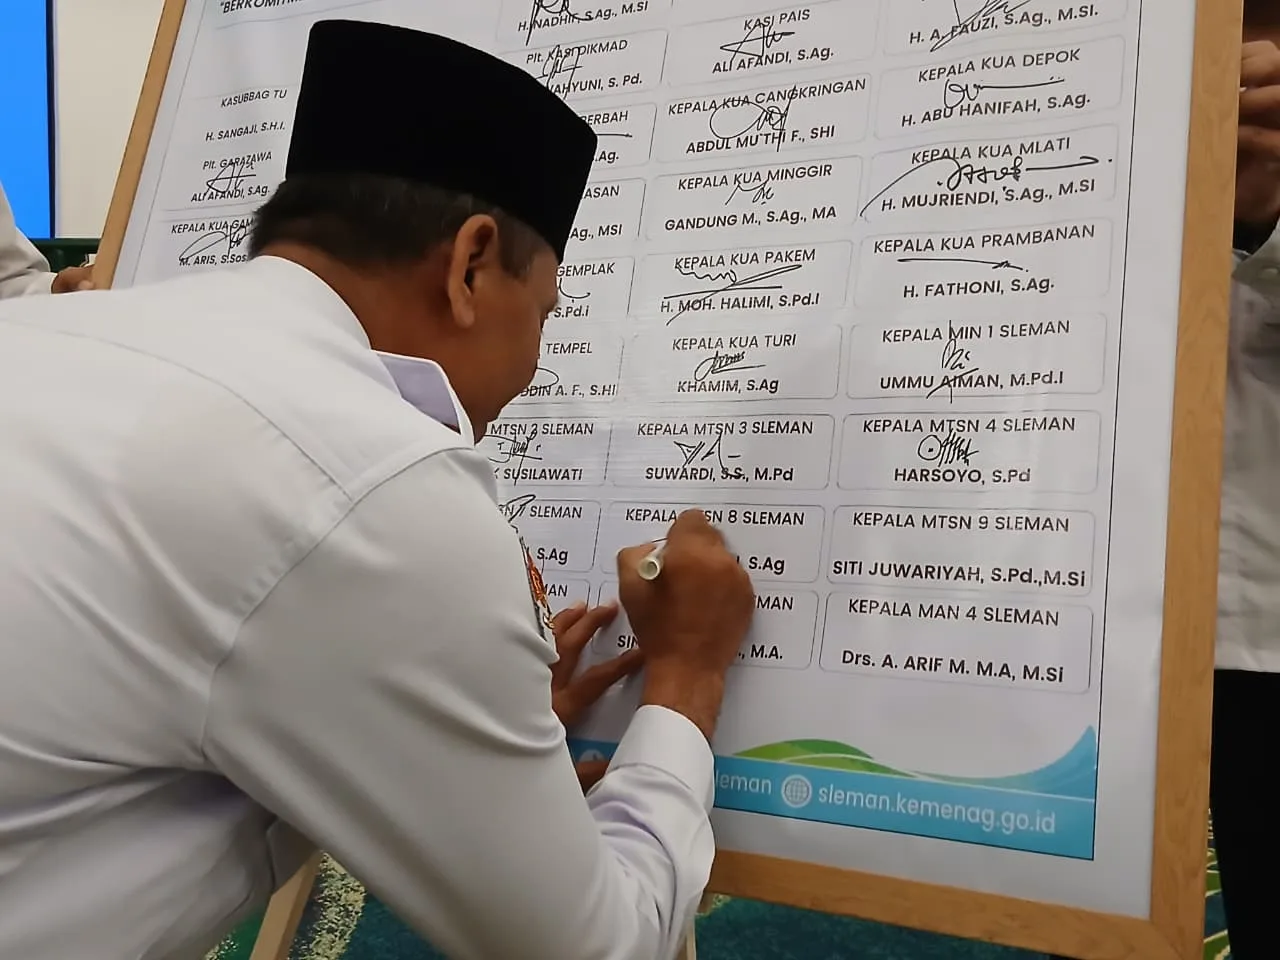 "BERKOMITME
H. NADHIF, S.Ag., M.SI
KASI PAIS
ALI AFANDI, S.Ag.
H. A. FAUZI, S.Ag., M.SI.
Plt. KASI DIKMAD
WAHYUNI, S. Pd.
KASUBBAG TU
H. SANGAJI, S.H.I.
BERBAH
Ag.
KEPALA KUA CANGKRINGAN
ABDUL MU'THI F., SHI
KEPALA KUA DEPOK
H. ABU HANIFAH, S.Ag.
Plt. GARAZAWA
ALI AFANDI, S.Ag.
ASAN
Ag., MSI
KEPALA KUA MINGGIR
GANDUNG M., S.Ag., MA
KEPALA KUA MLATI
H. MUJRIENDI, S.Ag., M.SI
KEPALA KUA GAM
M. ARIS, S.Sos
GEMPLAK
S.Pd.i
KEPALA KUA PAKEM
H. MOH. HALIMI, S.Pd.I
KEPALA KUA PRAMBANAN
H. FATHONI, S.Ag.
TEMPEL
DDIN A. F., S.HI
KEPALA KUA TURI
KHAMIM, S.Ag
KEPALA MIN 1 SLEMAN
UMMU AIMAN, M.Pd.I
MTSN 2 SLEMAN
K SUSILAWATI
KEPALA MTSN 3 SLEMAN
SUWARDI, S.S., M.Pd
KEPALA MTSN 4 SLEMAN
HARSOYO, S.Pd
SN 7 SLEMAN
S.Ag
KEPALA MTSN 8 SLEMAN
S.Ag
KEPALA MTSN 9 SLEMAN
SITI JUWARIYAH, S.Pd.,M.Si
MAN
SIN
MAN
, M.A.
KEPALA MAN 4 SLEMAN
Drs. A. ARIF M. M.A, M.Si
leman sleman.kemenag.go.id